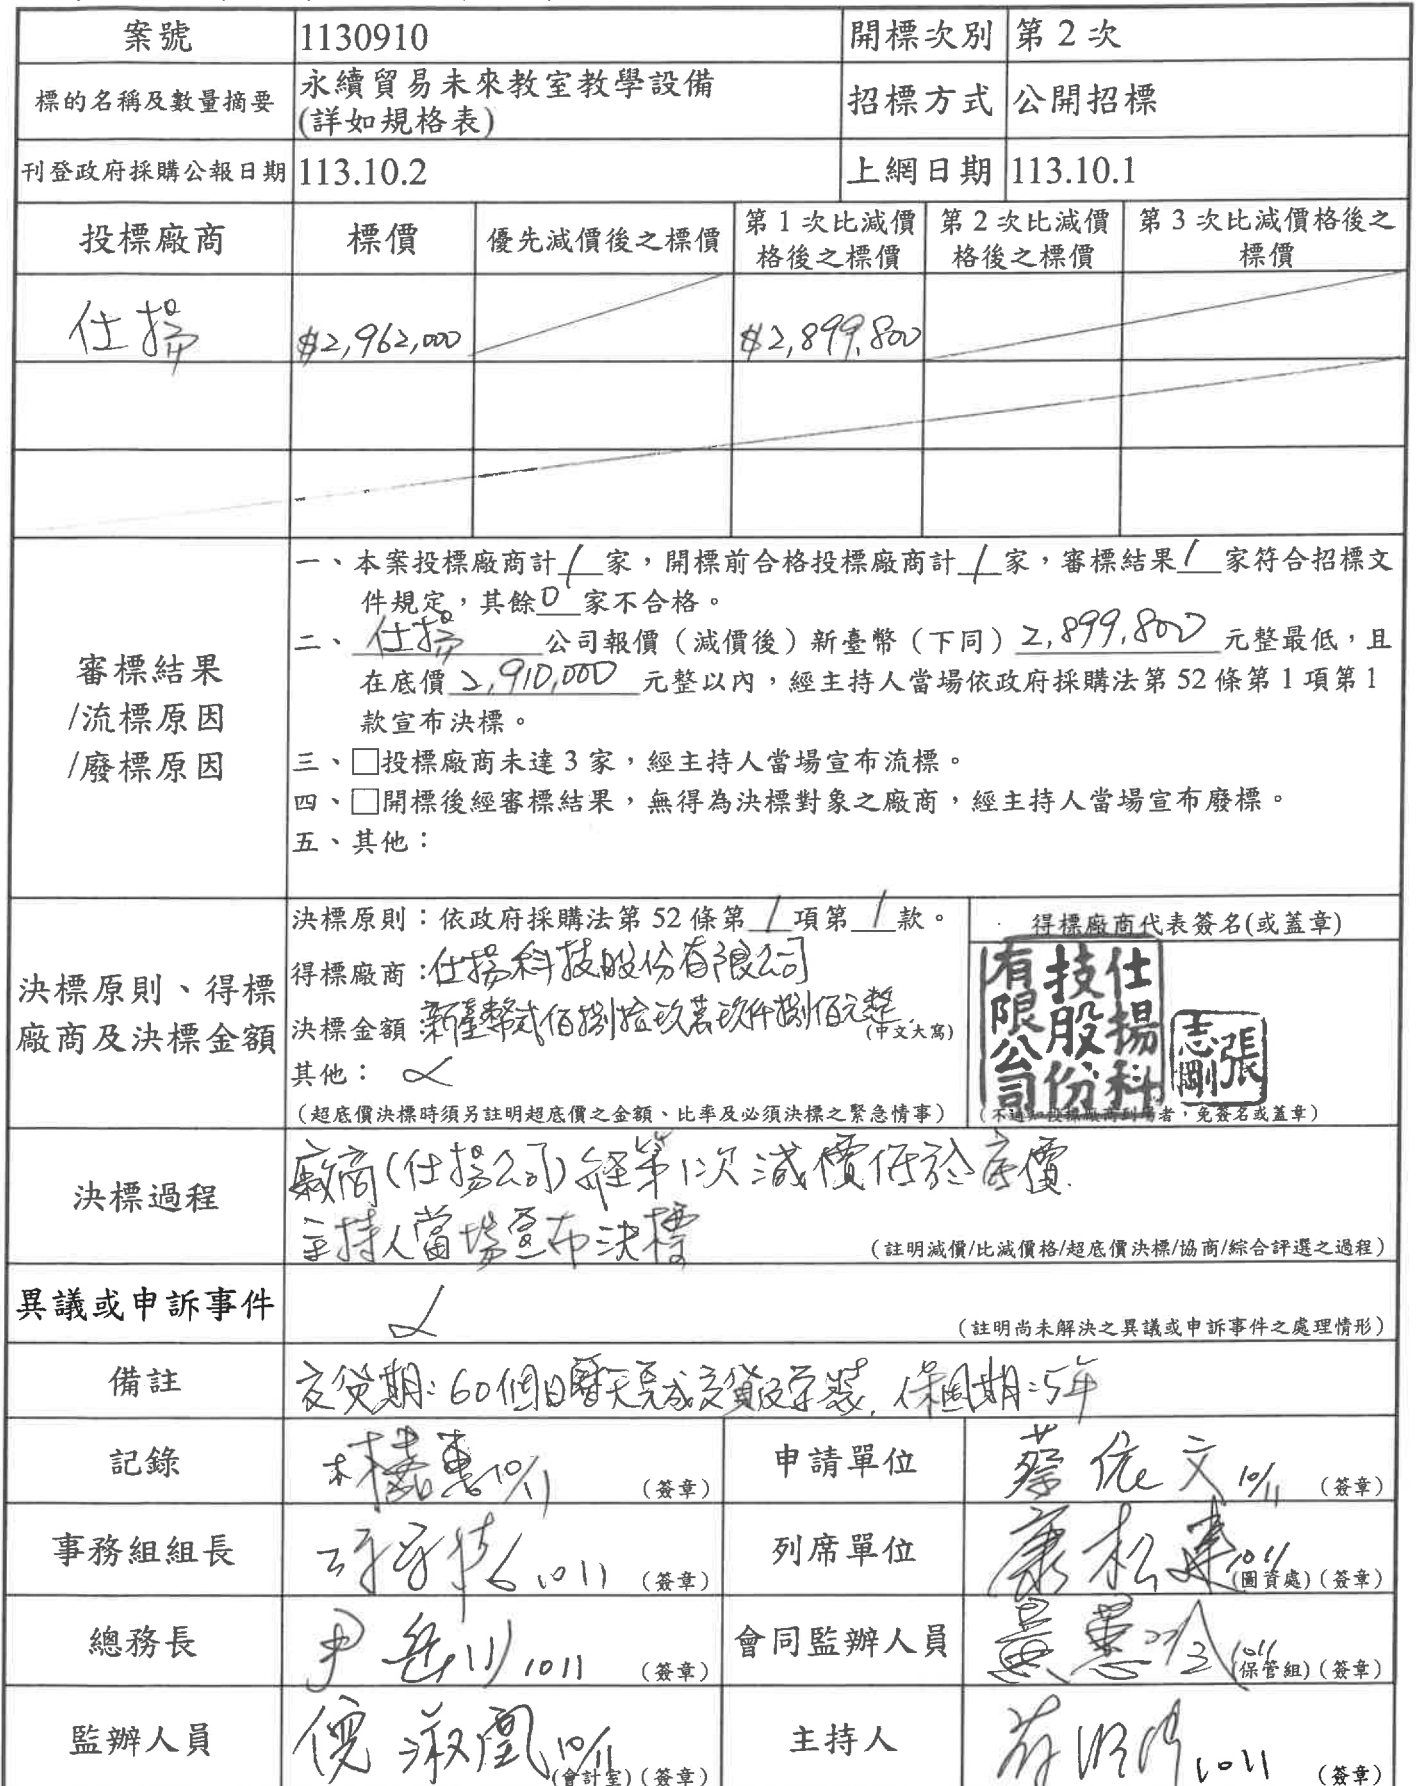 案號 1130910 開標次別 第 2 次
標的名稱及數量摘要 永續貿易未來教室教學設備 招標方式 公開招標
(詳如規格表)
刊登政府採購公報日期 113.10.2 上網日期 113.10.1
投標廠商 標價 優先減價後之標價 第 1 次比減價格後之標價 第 2 次比減價格後之標價 第 3 次比減價格後之標價
仕揚 $2,962,000 $2,899,800
審標結果
/流標原因
/廢標原因
一、本案投標廠商計 1 家，開標前合格投標廠商計 1 家，審標結果 1 家符合招標文
件規定，其餘 0 家不合格。
二、仕揚 公司報價（減價後）新臺幣（下同）2,899,800 元整最低，且
在底價 2,910,000 元整以內，經主持人當場依政府採購法第 52 條第 1 項第 1
款宣布決標。
三、□投標廠商未達 3 家，經主持人當場宣布流標。
四、□開標後經審標結果，無得為決標對象之廠商，經主持人當場宣布廢標。
五、其他：
決標原則、得標
廠商及決標金額
決標原則：依政府採購法第 52 條第 1 項第 1 款。
得標廠商：仕揚科技股份有限公司
決標金額：新臺幣貳佰捌拾玖萬玖仟捌佰元整 (中文大寫)
其他：
（超底價決標時須另註明超底價之金額、比率及必須決標之緊急情事）
得標廠商代表簽名(或蓋章)
仕揚科技股份有限公司
張志剛
（不通知投標廠商到場者，免簽名或蓋章）
決標過程 廠商(仕揚公司)經第1次減價低於底價.
主持人當場宣布決標
（註明減價/比減價格/超底價決標/協商/綜合評選之過程）
異議或申訴事件 （註明尚未解決之異議或申訴事件之處理情形）
備註 交貨期：60個日曆天完成交貨及安裝，保固期：5年
記錄 10/11 （簽章） 申請單位 蔡依文 10/11 （簽章）
事務組組長 1011 （簽章） 列席單位 康松建 1011 (圖資處)（簽章）
總務長 1011 （簽章） 會同監辦人員 黃 1011 (保管組)（簽章）
監辦人員 倪淑凰 10/11 (會計室)（簽章） 主持人 1011 （簽章）